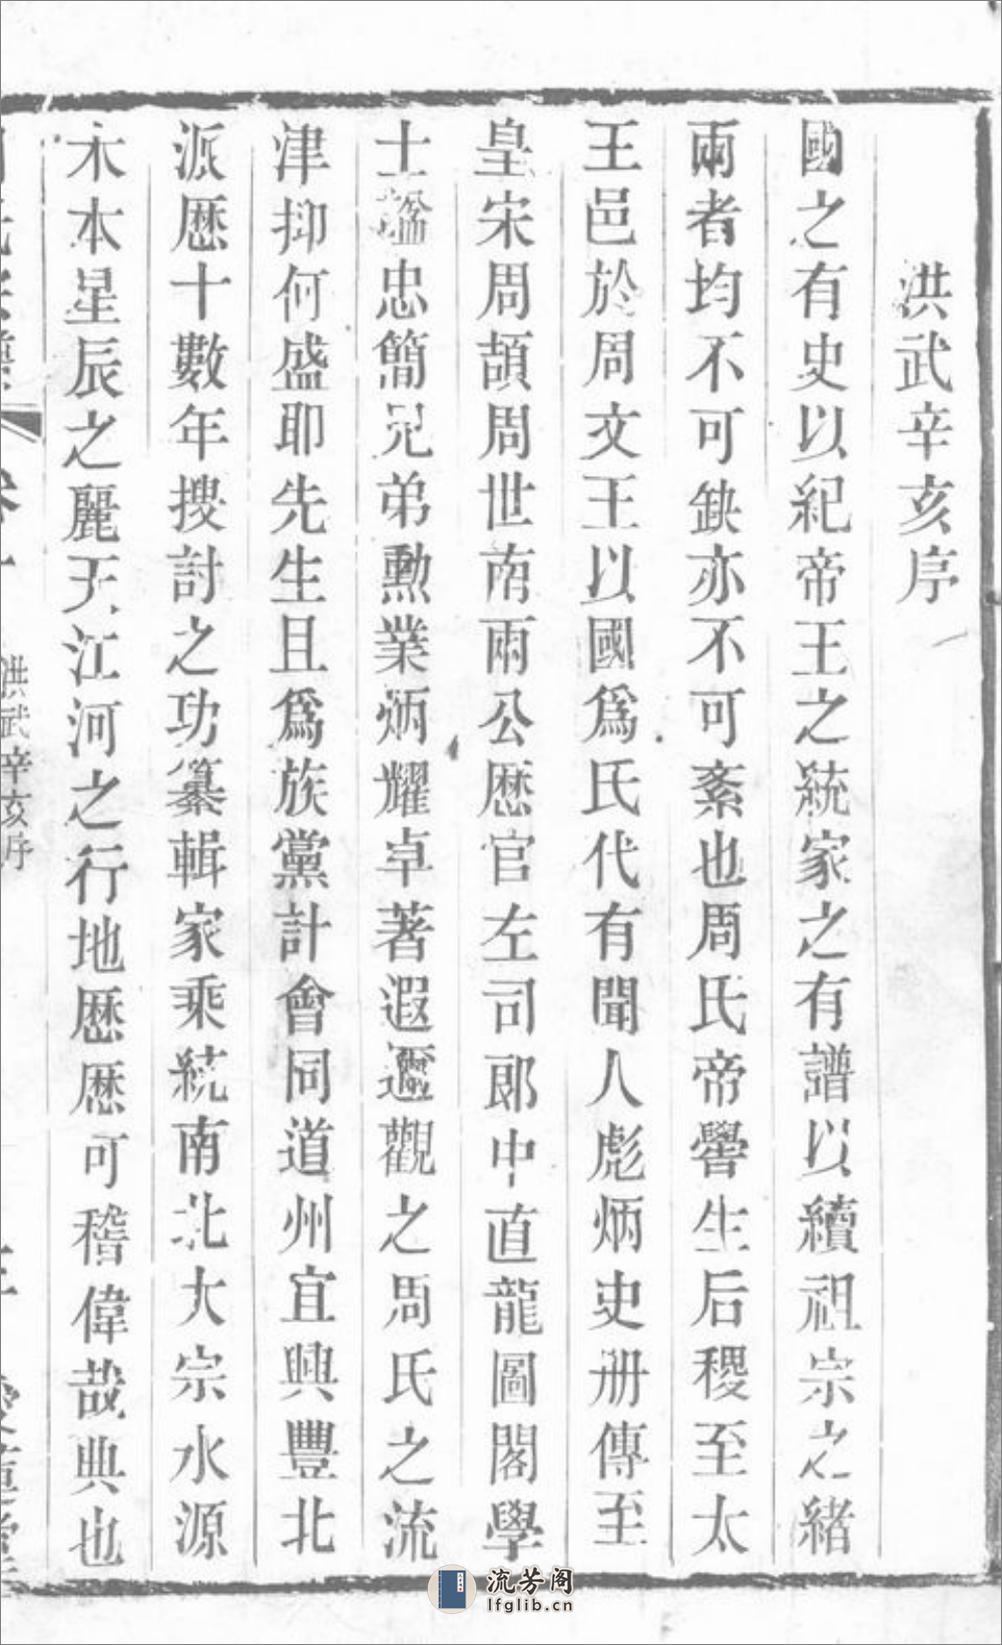 洪武辛亥序
國之有史以紀帝王之統家之有譜以續祖宗之緒
兩者均不可缺亦不可紊也周氏帝嚳生后稷至太
王邑於周文王以國爲氏代有聞人彪炳史册傳至
皇宋周頡周世南兩公歷官左司郎中直龍圖閣學
士謚忠簡兄弟勳業炳耀卓著遐邇觀之周氏之流
津抑何盛耶先生且爲族黨計會同道州宜興豐北
派歷十數年搜討之功纂輯家乘統南北大宗水源
木本星辰之麗天江河之行地歷歷可稽偉哉典也
洪武辛亥序
流芳阁
lfglib.cn